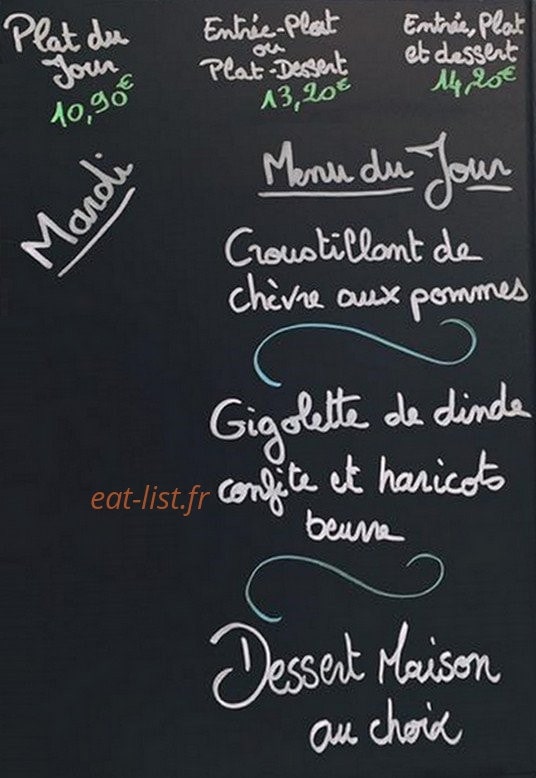 Plat du
Jour
10,90€
Entrée-Plat
ou
Plat-Dessert
13,20€
Entrée, Plat
et dessert
14,20€
Mardi
Menu du Jour
Croustillant de
chèvre aux pommes
Gigolette de dinde
confite et haricots
beurre
eat-list.fr
Dessert Maison
au choix